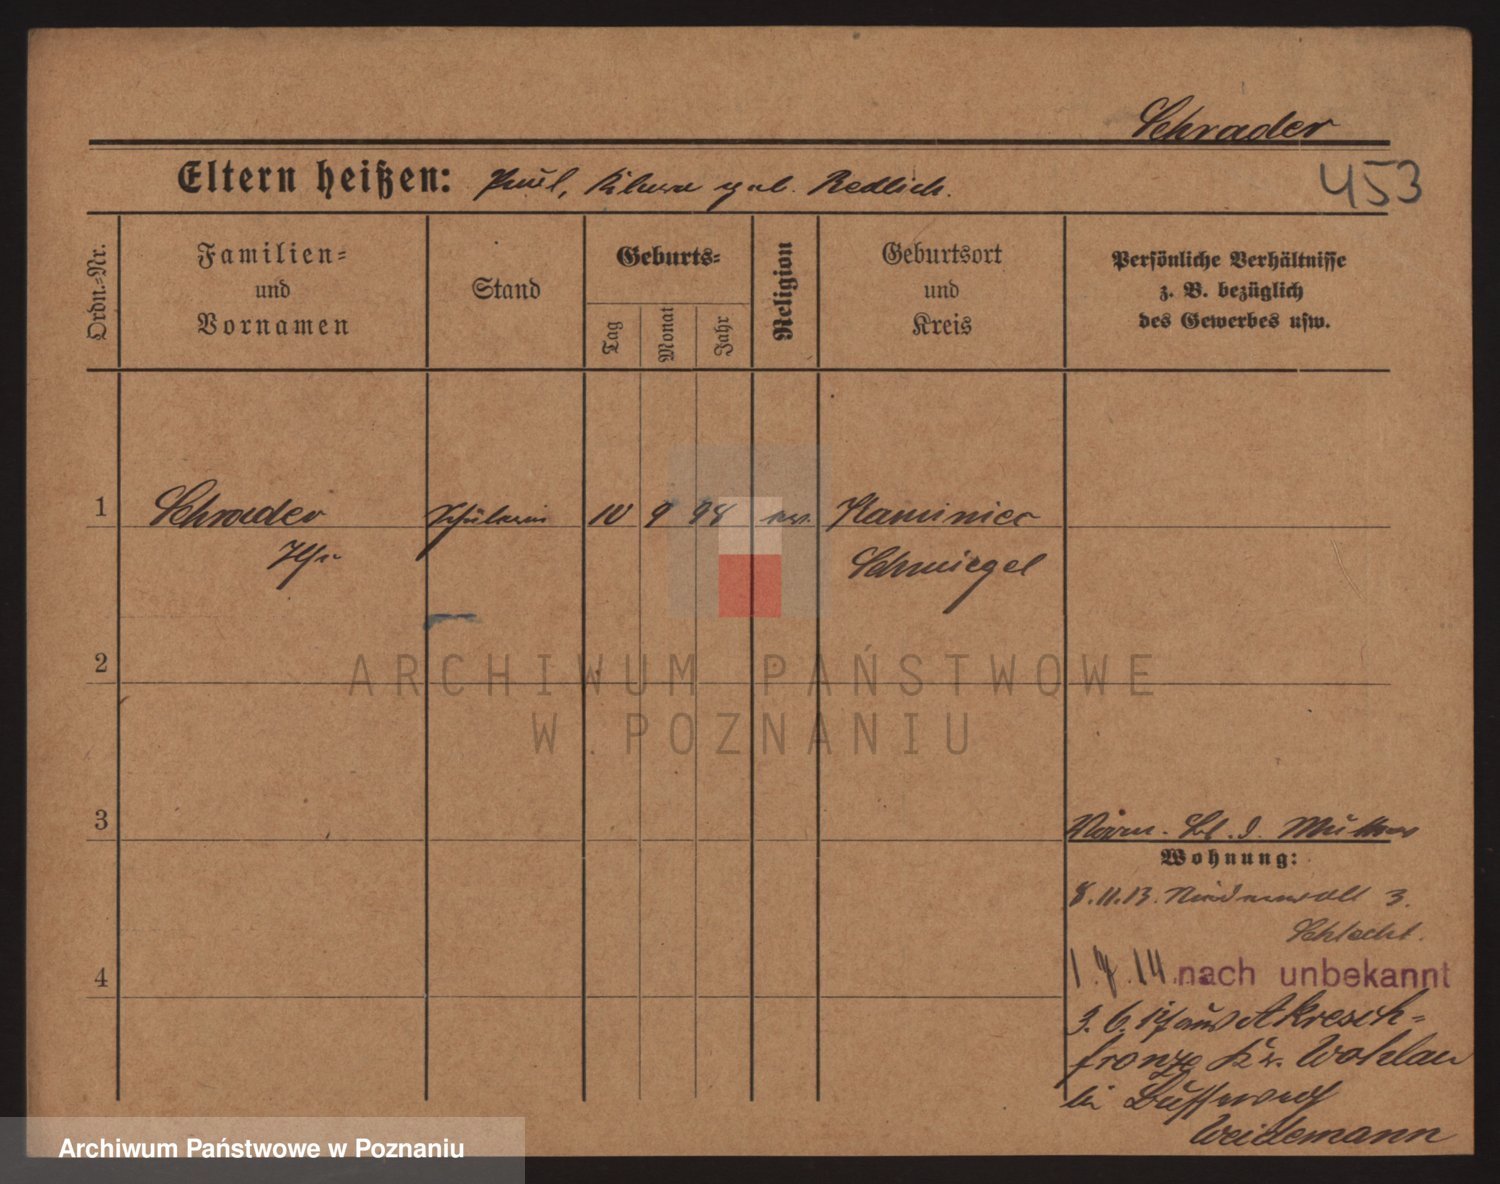 Schrader
453
Eltern heißen: Paul, Klara geb. Redlich.
Ordn.-Nr.
Familien-
und
Vornamen
Stand
Geburts-
Tag
Monat
Jahr
Religion
Geburtsort
und
Kreis
Persönliche Verhältnisse
z. B. bezüglich
des Gewerbes usw.
1
Schrader Schülerin 10 9 98 ev. Kaminiec
Ilse
Schmiegel
2
ARCHIWUM PAŃSTWOWE
W POZNANIU
3
d. Mutter
Wohnung:
8.11.13. Niederwall 3.
Schlecht.
1.7.14 nach unbekannt
3.6.17 aus Akresch-
fronze Kr. Wohlau
bei
Weidemann
4
Archiwum Państwowe w Poznaniu